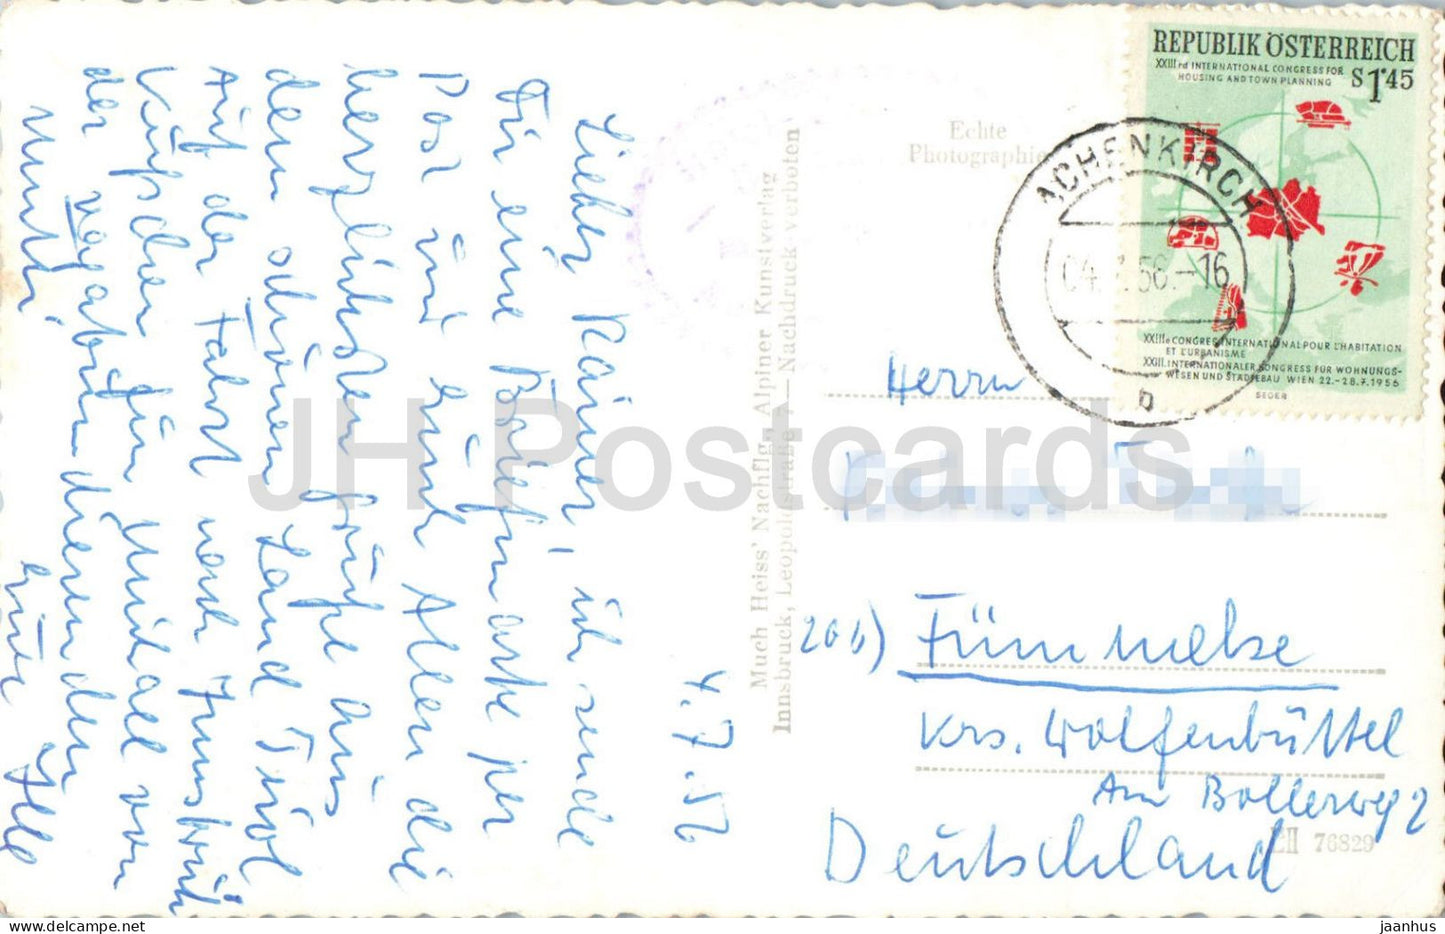 4.7.56
Lieber Rainer, ich sende
Dir eine Briefmarke per
Post und Euch Allen die
herzlichsten Grüße aus
dem schönen Land Tirol
Auf der Fahrt nach Innsbruck
Küßchen für Mutti von
der
Mutti
Much Heiss' Nachflgn Alpiner Kunstverlag
Innsbruck, Leopoldstraße Nachdruck verboten
Echte
Photographie
REPUBLIK ÖSTERREICH
XXIII rd INTERNATIONAL CONGRESS FOR
HOUSING AND TOWN PLANNING
S 1·45
XXIIIe CONGRES INTERNATIONAL POUR L'HABITATION
ET L'URBANISME
XXIII. INTERNATIONALER KONGRESS FÜR WOHNUNGS-
WESEN UND STÄDTEBAU WIEN 22.-28.7.1956
SEGER
ACHENKIRCH
56.-16
b
Herrn
20b) Fümmelse
Krs. Wolfenbüttel
Am Bollerweg 2
Deutschland
EH 76829
JH Postcards
jaanhus